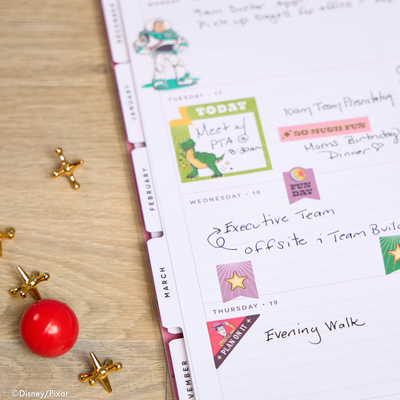 DECEMBER
Pick up bagels for office
TUESDAY • 17
TODAY
Meet w/
PTA @
8:30am
10am Team Presentation
SO MUCH FUN
Moms Birthday
Dinner ♡
FUN
DAY
JANUARY
FEBRUARY
WEDNESDAY • 18
Executive Team
offsite
Team Buil
MARCH
THURSDAY • 19
PLAN ON IT
Evening Walk
©Disney/Pixar